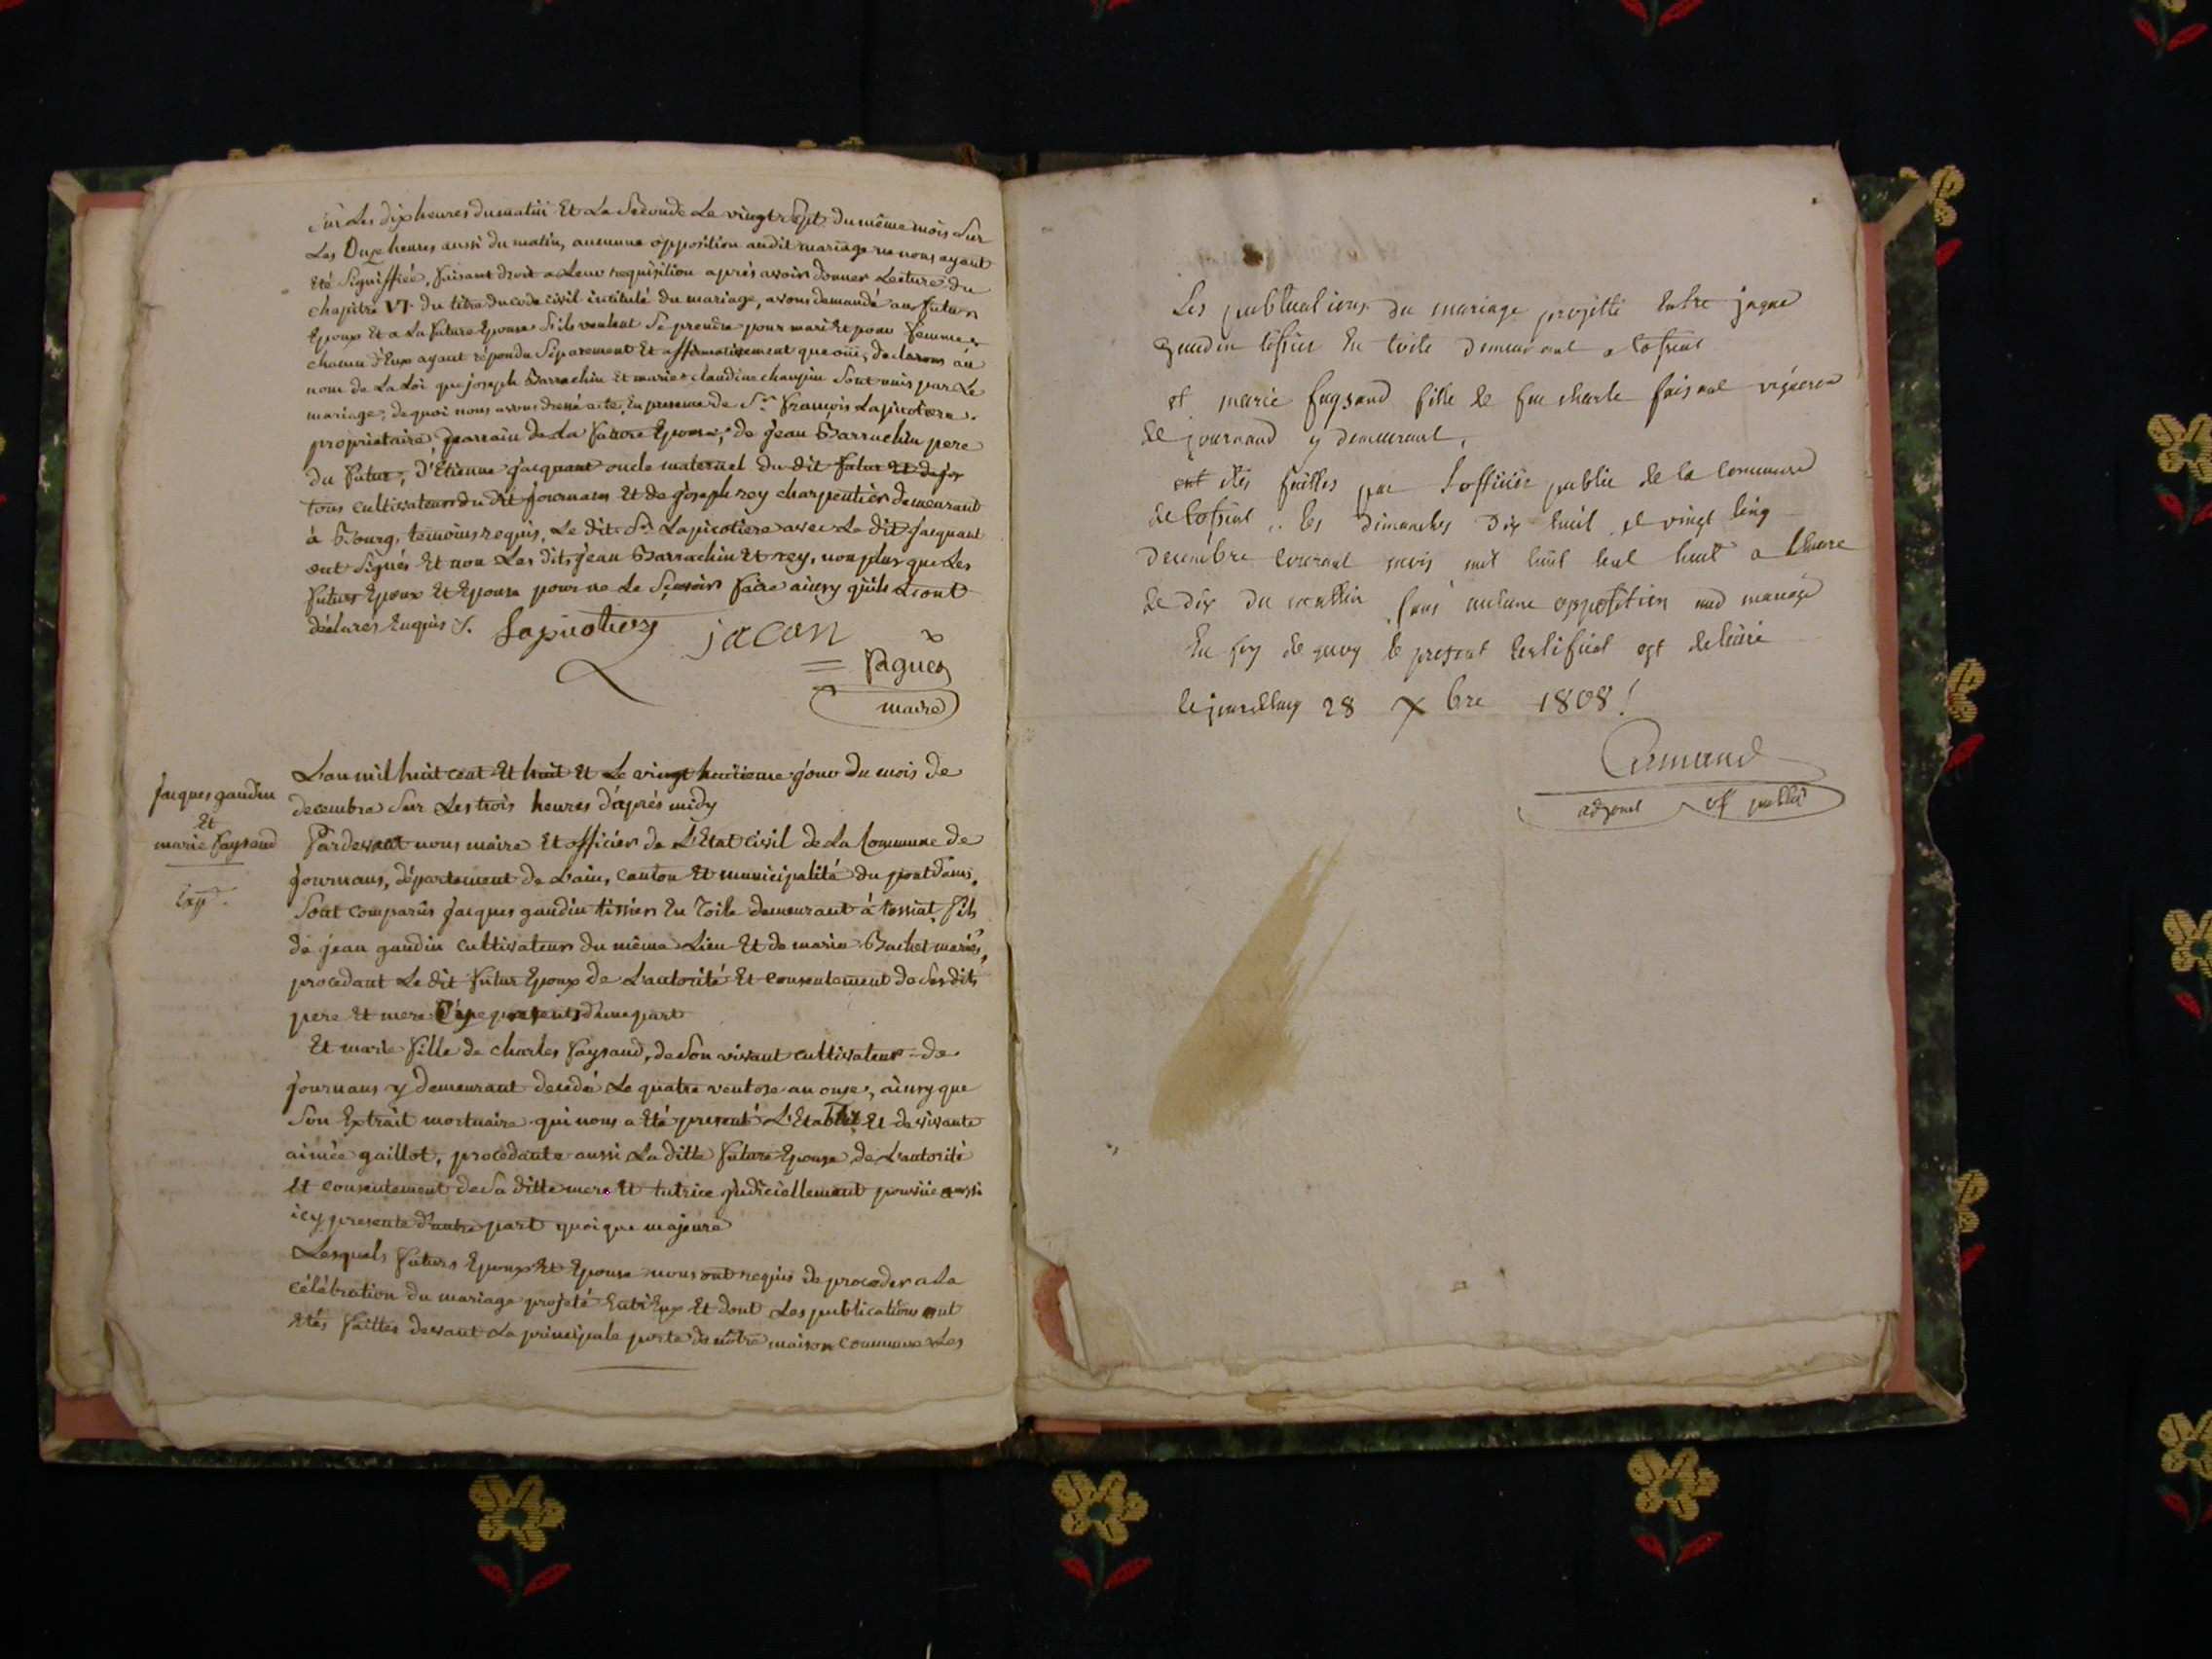 Sur Les dix heures du matin Et La Seconde Le vingt Sept du même mois Sur
Les Onze heures aussi du matin, aucunne opposition audit mariage ne nous ayant
Eté Signiffiée, faisant droit a Leur requisition aprés avoir donner Lecture du
chapitre VI. du titre du code civil intitulé du mariage, avons demandé au futur
Epoux Et a La future Epouse S'ils veulent Se prendre pour mari Et pour femme,
chacun d'Eux ayant répondu Séparement Et affirmativement que oüi, declarons au
nom de La Loi que joseph Barrachin Et marie claudine chanpin Sont unis par Le
mariage, de quoi nous avons dressé acte, En presence de Sr. françois Lapicotiere
propriétaire parrain de La future Epouse, de jean Barrachin pere
du futur, d'Étienne jacquant oncle maternel du dit futur et de jos
tous cultivateurs du dit journans Et de joseph rey charpentier demeurant
à Bourg, temoins requis, Le dit Sr. Lapicotiere avec Le dit jacquant
ont Signés Et non Les dits jean Barrachin Et rey, non plus que Les
futurs Epoux Et Epouse pour ne Le Sçavoir faire ainsy qu'ils L'ont
déclarés Enquis ./.
Lapicotiere jacan
fagues
maire
jacques gaudin
Et
marie faysand
Exp.
L'an mil huit cent Et huit Et Le vingt huitieme jour du mois de
decembre Sur Les trois heures d'aprés midy
Pardevant nous maire Et officier de L'Etat civil de La Commune de
journans, département de L'ain, canton Et municipalité du pont d'ains,
Sont comparûs jacques gaudin tissier En Toile demeurant à tossiat, fils
de jean gaudin cultivateur du même Lieu Et de marie Bachet mariés,
procedant Le dit futur Epoux de L'autorité Et consentement de Ses dits
pere Et mere Cy presents d'une part
Et marie fille de charles faysand, de Son vivant cultivateur de
journans y demeurant decedé Le quatre ventose an onze, ainsy que
Son Extrait mortuaire qui nous a Eté presenté L'Etablit Et de vivante
aimée gaillot, procédante aussi La ditte future Epouse de L'autorité
Et consentement de Sa ditte mere Et tutrice judiciellement aussi
icy presente d'autre part quoique majeure
Lesquels futurs Epoux Et Epouse nous ont requis de proceder a La
célébration du mariage projeté Entr'Eux Et dont Les publications ont
Etés faittes devant La principale porte de nôtre maison commune Les
Les publications du mariage projetté Entre jaque
gaudin tissier En toile demeurant a tossiat
et marie faysand fille de feu charle faisant vigneron
de journand y demeurant,
ont étés faittes par Lofficier public de la commune
de tossiat les dimanches dix huit et vingt cinq
decembre courant mois mil huit cent huit a Lheure
de dix du mattin sans aucune opposition aud mariage
En foy de quoy le present Certificat est delivré
le 28 Xbre 1808 !
adjoint off public